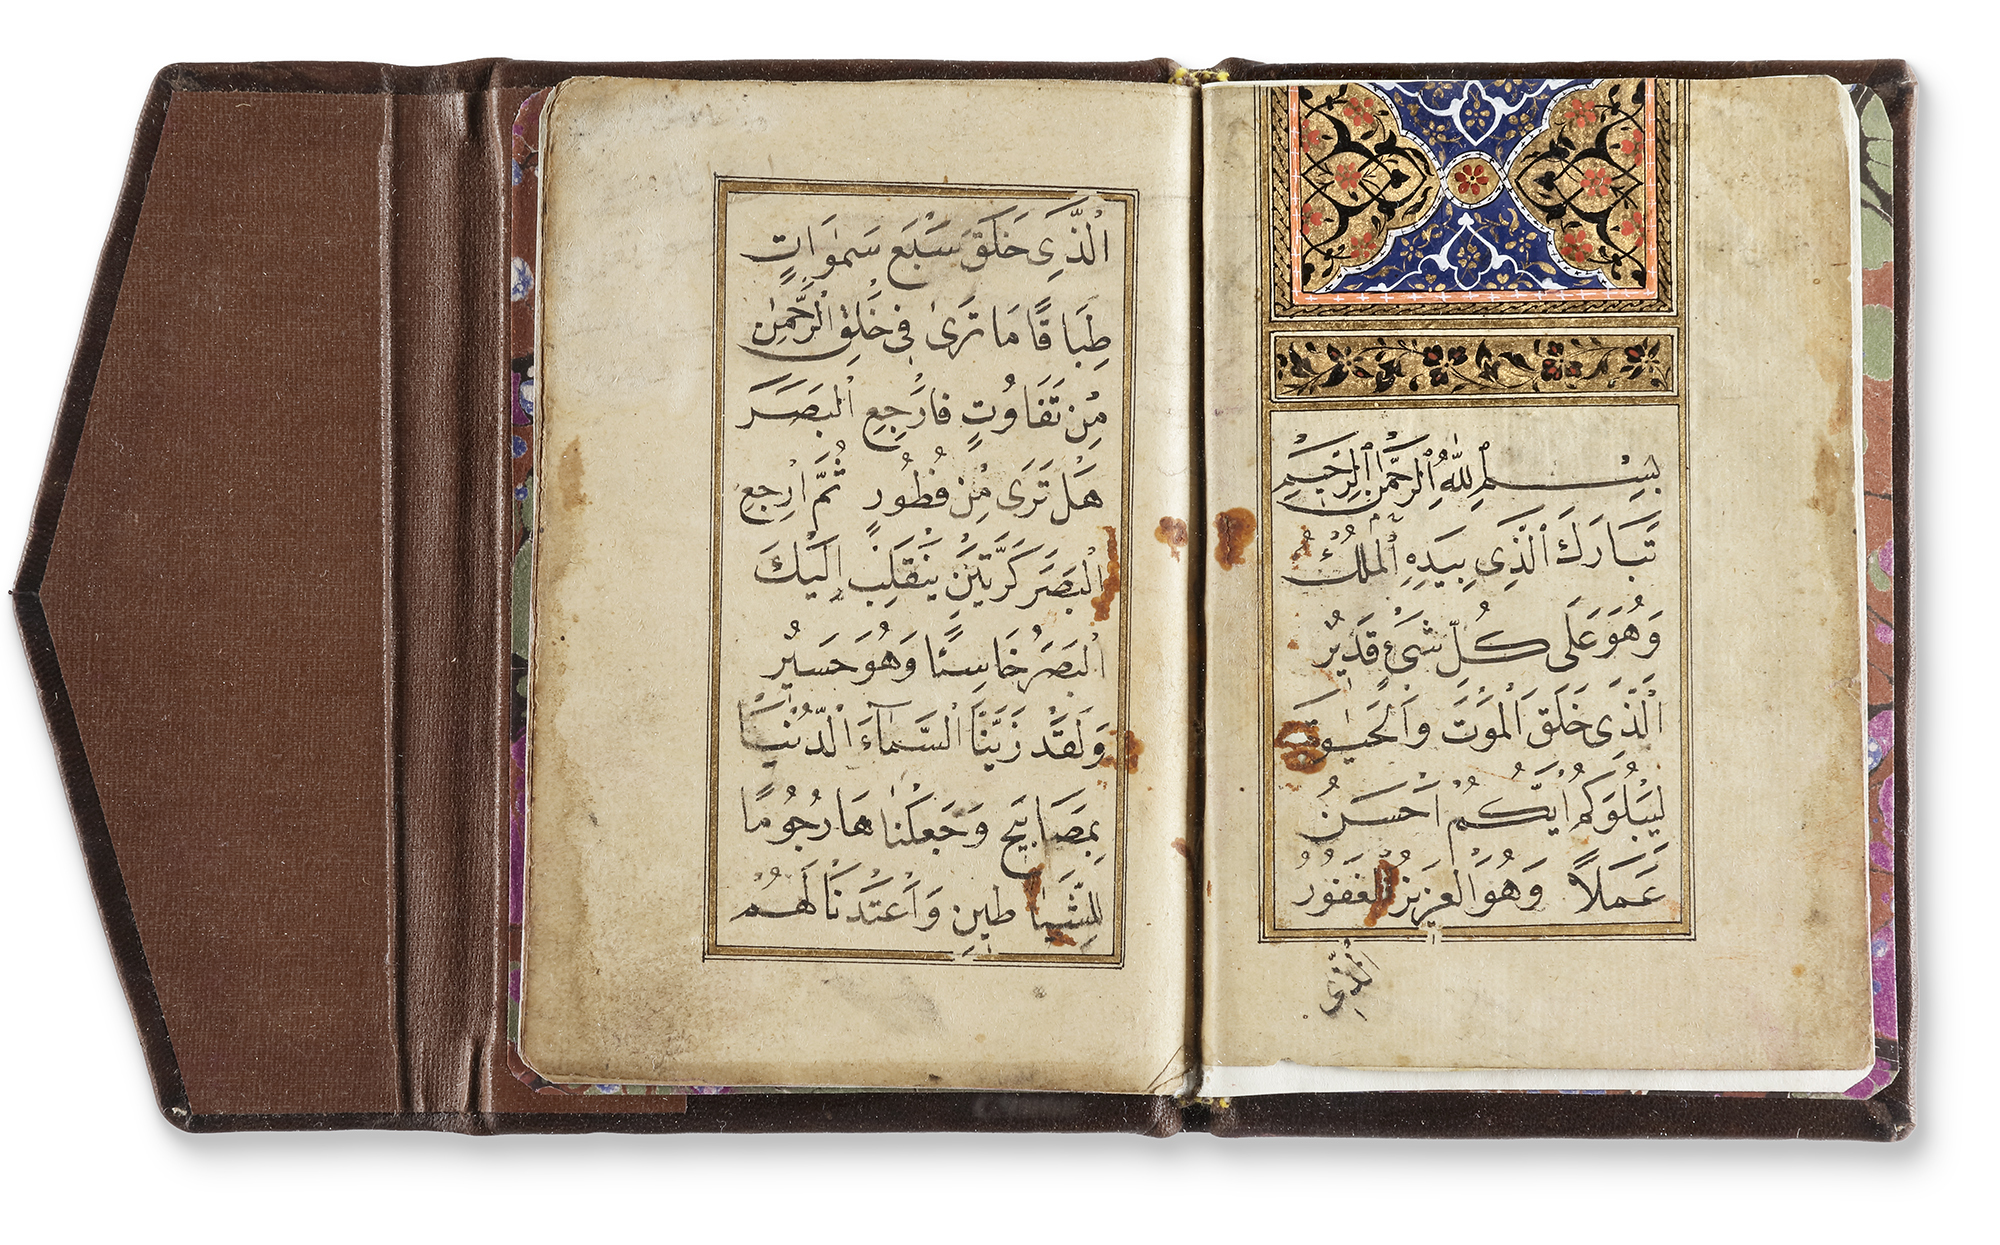 بِسْمِ ٱللّٰهِ ٱلرَّحْمٰنِ ٱلرَّحِيمِ
تَبَارَكَ ٱلَّذِي بِيَدِهِ ٱلْمُلْكُ
وَهُوَ عَلَى كُلِّ شَيْءٍ قَدِيرٌ
اَلَّذِي خَلَقَ الْمَوْتَ وَالْحَيٰوةَ
لِيَبْلُوَكُمْ اَيُّكُمْ اَحْسَنُ
عَمَلًا وَهُوَ الْعَزِيزُ الْغَفُورُ
الَّذِي
الَّذِي خَلَقَ سَبْعَ سَمٰوَاتٍ
طِبَاقًا مَا تَرٰى فِي خَلْقِ الرَّحْمٰنِ
مِنْ تَفَاوُتٍ فَارْجِعِ الْبَصَرَ
هَلْ تَرَى مِنْ فُطُورٍ ثُمَّ ارْجِعِ
الْبَصَرَ كَرَّتَيْنِ يَنْقَلِبْ اِلَيْكَ
الْبَصَرُ خَاسِئًا وَهُوَ حَسِيرٌ
وَلَقَدْ زَيَّنَّا السَّمَآءَ الدُّنْيَا
بِمَصَابِيحَ وَجَعَلْنَاهَا رُجُومًا
لِلشَّيَاطِينِ وَاَعْتَدْنَا لَهُمْ